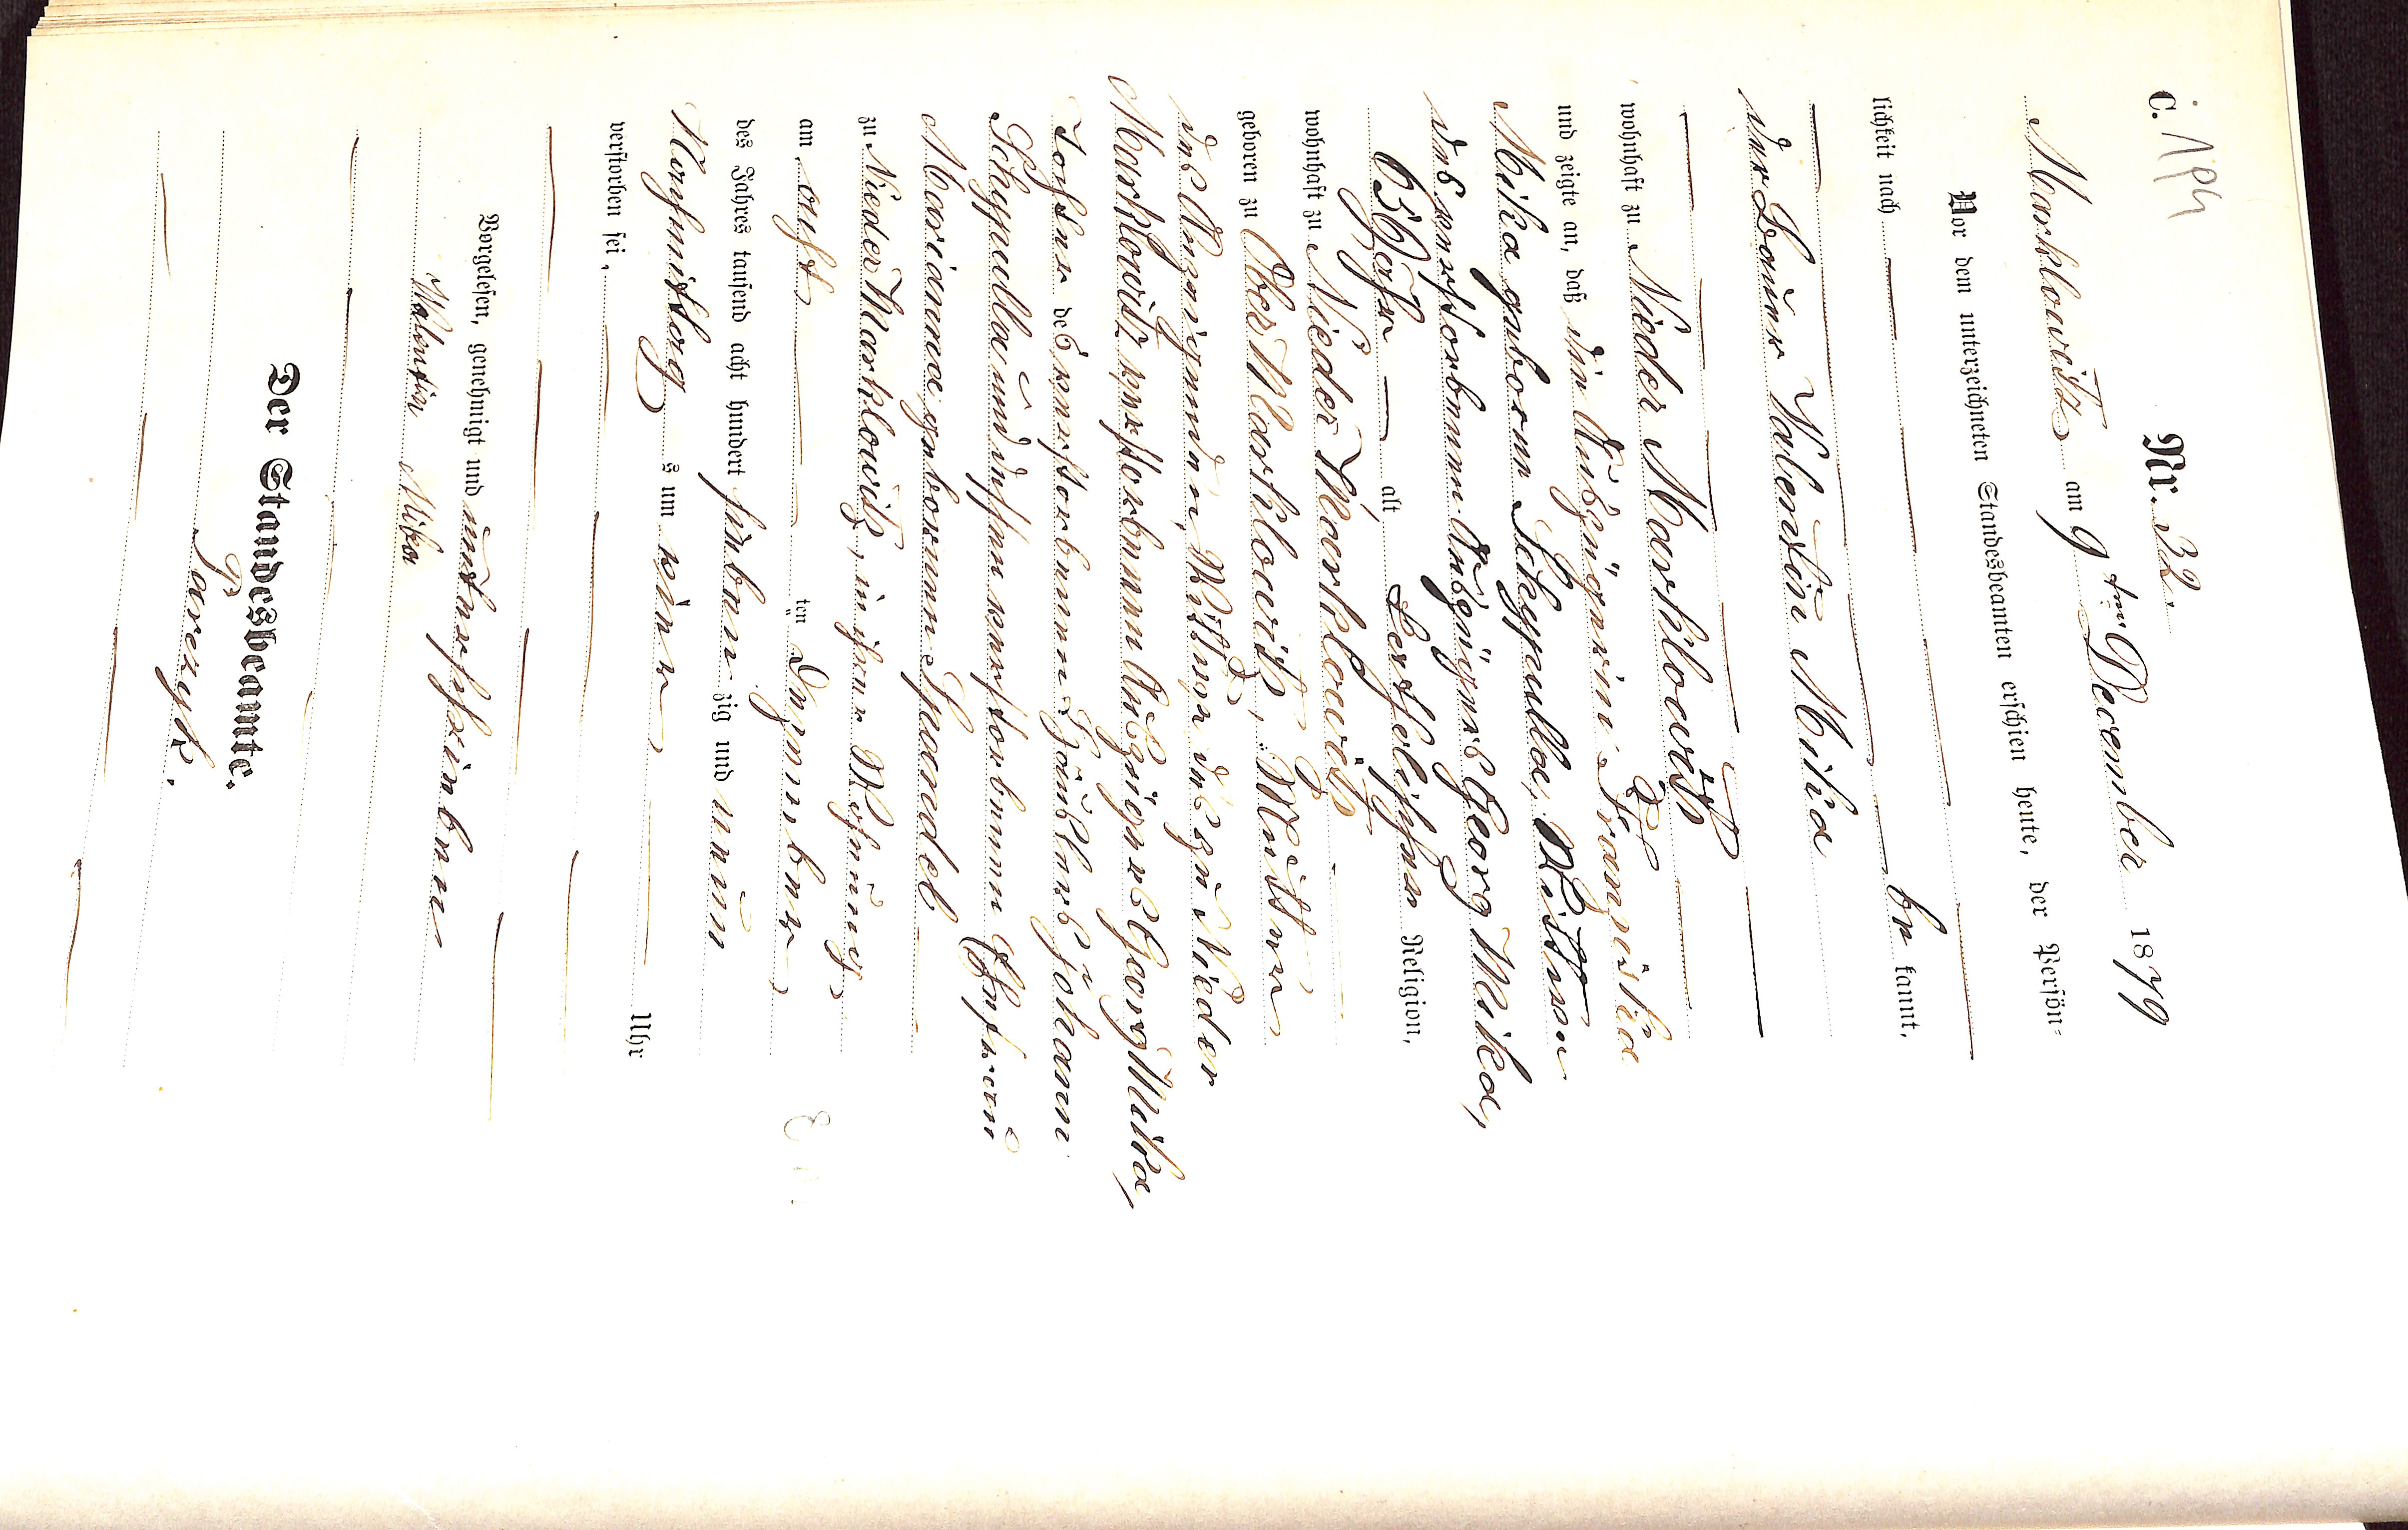 C. 194
Nr. 32.
Marklowitz am 9ten December 1879
Vor dem unterzeichneten Standesbeamten erschien heute, der Persön-
lichkeit nach
be kannt,
der Bauer Valentin Mika
wohnhaft zu Nieder Marklowitz
und zeigte an, daß die Auszügerin Franziska
Mika geborne Schypulla, Wittwe
des verstorbenen Auszügers Georg Mika,
65 Jahr alt, katholischer Religion,
wohnhaft zu Nieder Marklowitz
geboren zu Ober Marklowitz, Mutter
des Anzeigenden, Wittwe des zu Nieder
Marklowitz verstorbenen Auszügers Georg Mika,
Tochter des verstorbenen Häuslers Johann
Schypulla und dessen verstorbenen Ehefrau
Marianna gebornen Spandel
zu Nieder Marklowitz, in ihrer Wohnung
am acht ten Dezember
des Jahres tausend acht hundert sieben zig und neun
Nachmittag s um vier Uhr
verstorben sei.
Vorgelesen, genehmigt und unterschrieben
Walentin Mika
Der Standesbeamte.
Parczyk.